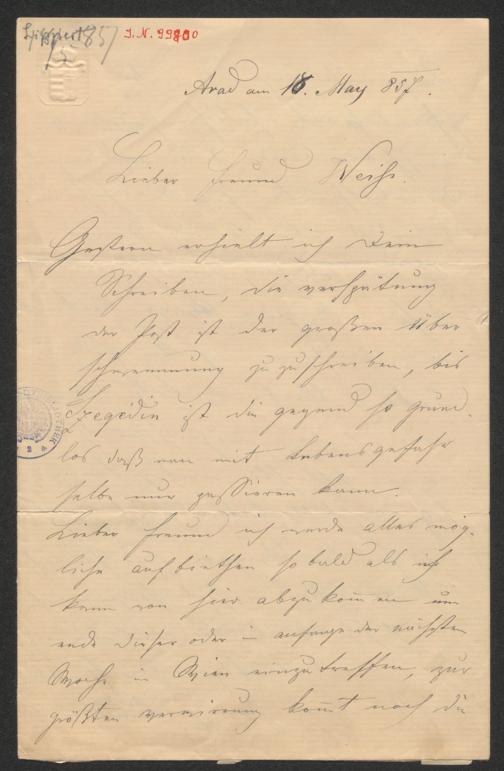 18/5 857
I.N. 99800
Arad am 18. May 857.
Lieber Freund Weiß.
Gestern erhielt ich Dein
Schreiben, die verspätung
der Post ist der großen Über
schwemmung zu zuschreiben, bis
Szegedin ist die gegend so grund-
los daß man mit Lebensgefahr
selbe nur passieren kann.
Lieber Freund ich werde alles mög-
liche aufbiethen sobald als ich
kann von hier abzukommen um
ende dieser oder in anfange der nächsten
Woche in Wien einzutreffen, zur
größten verwirrung komt noch die